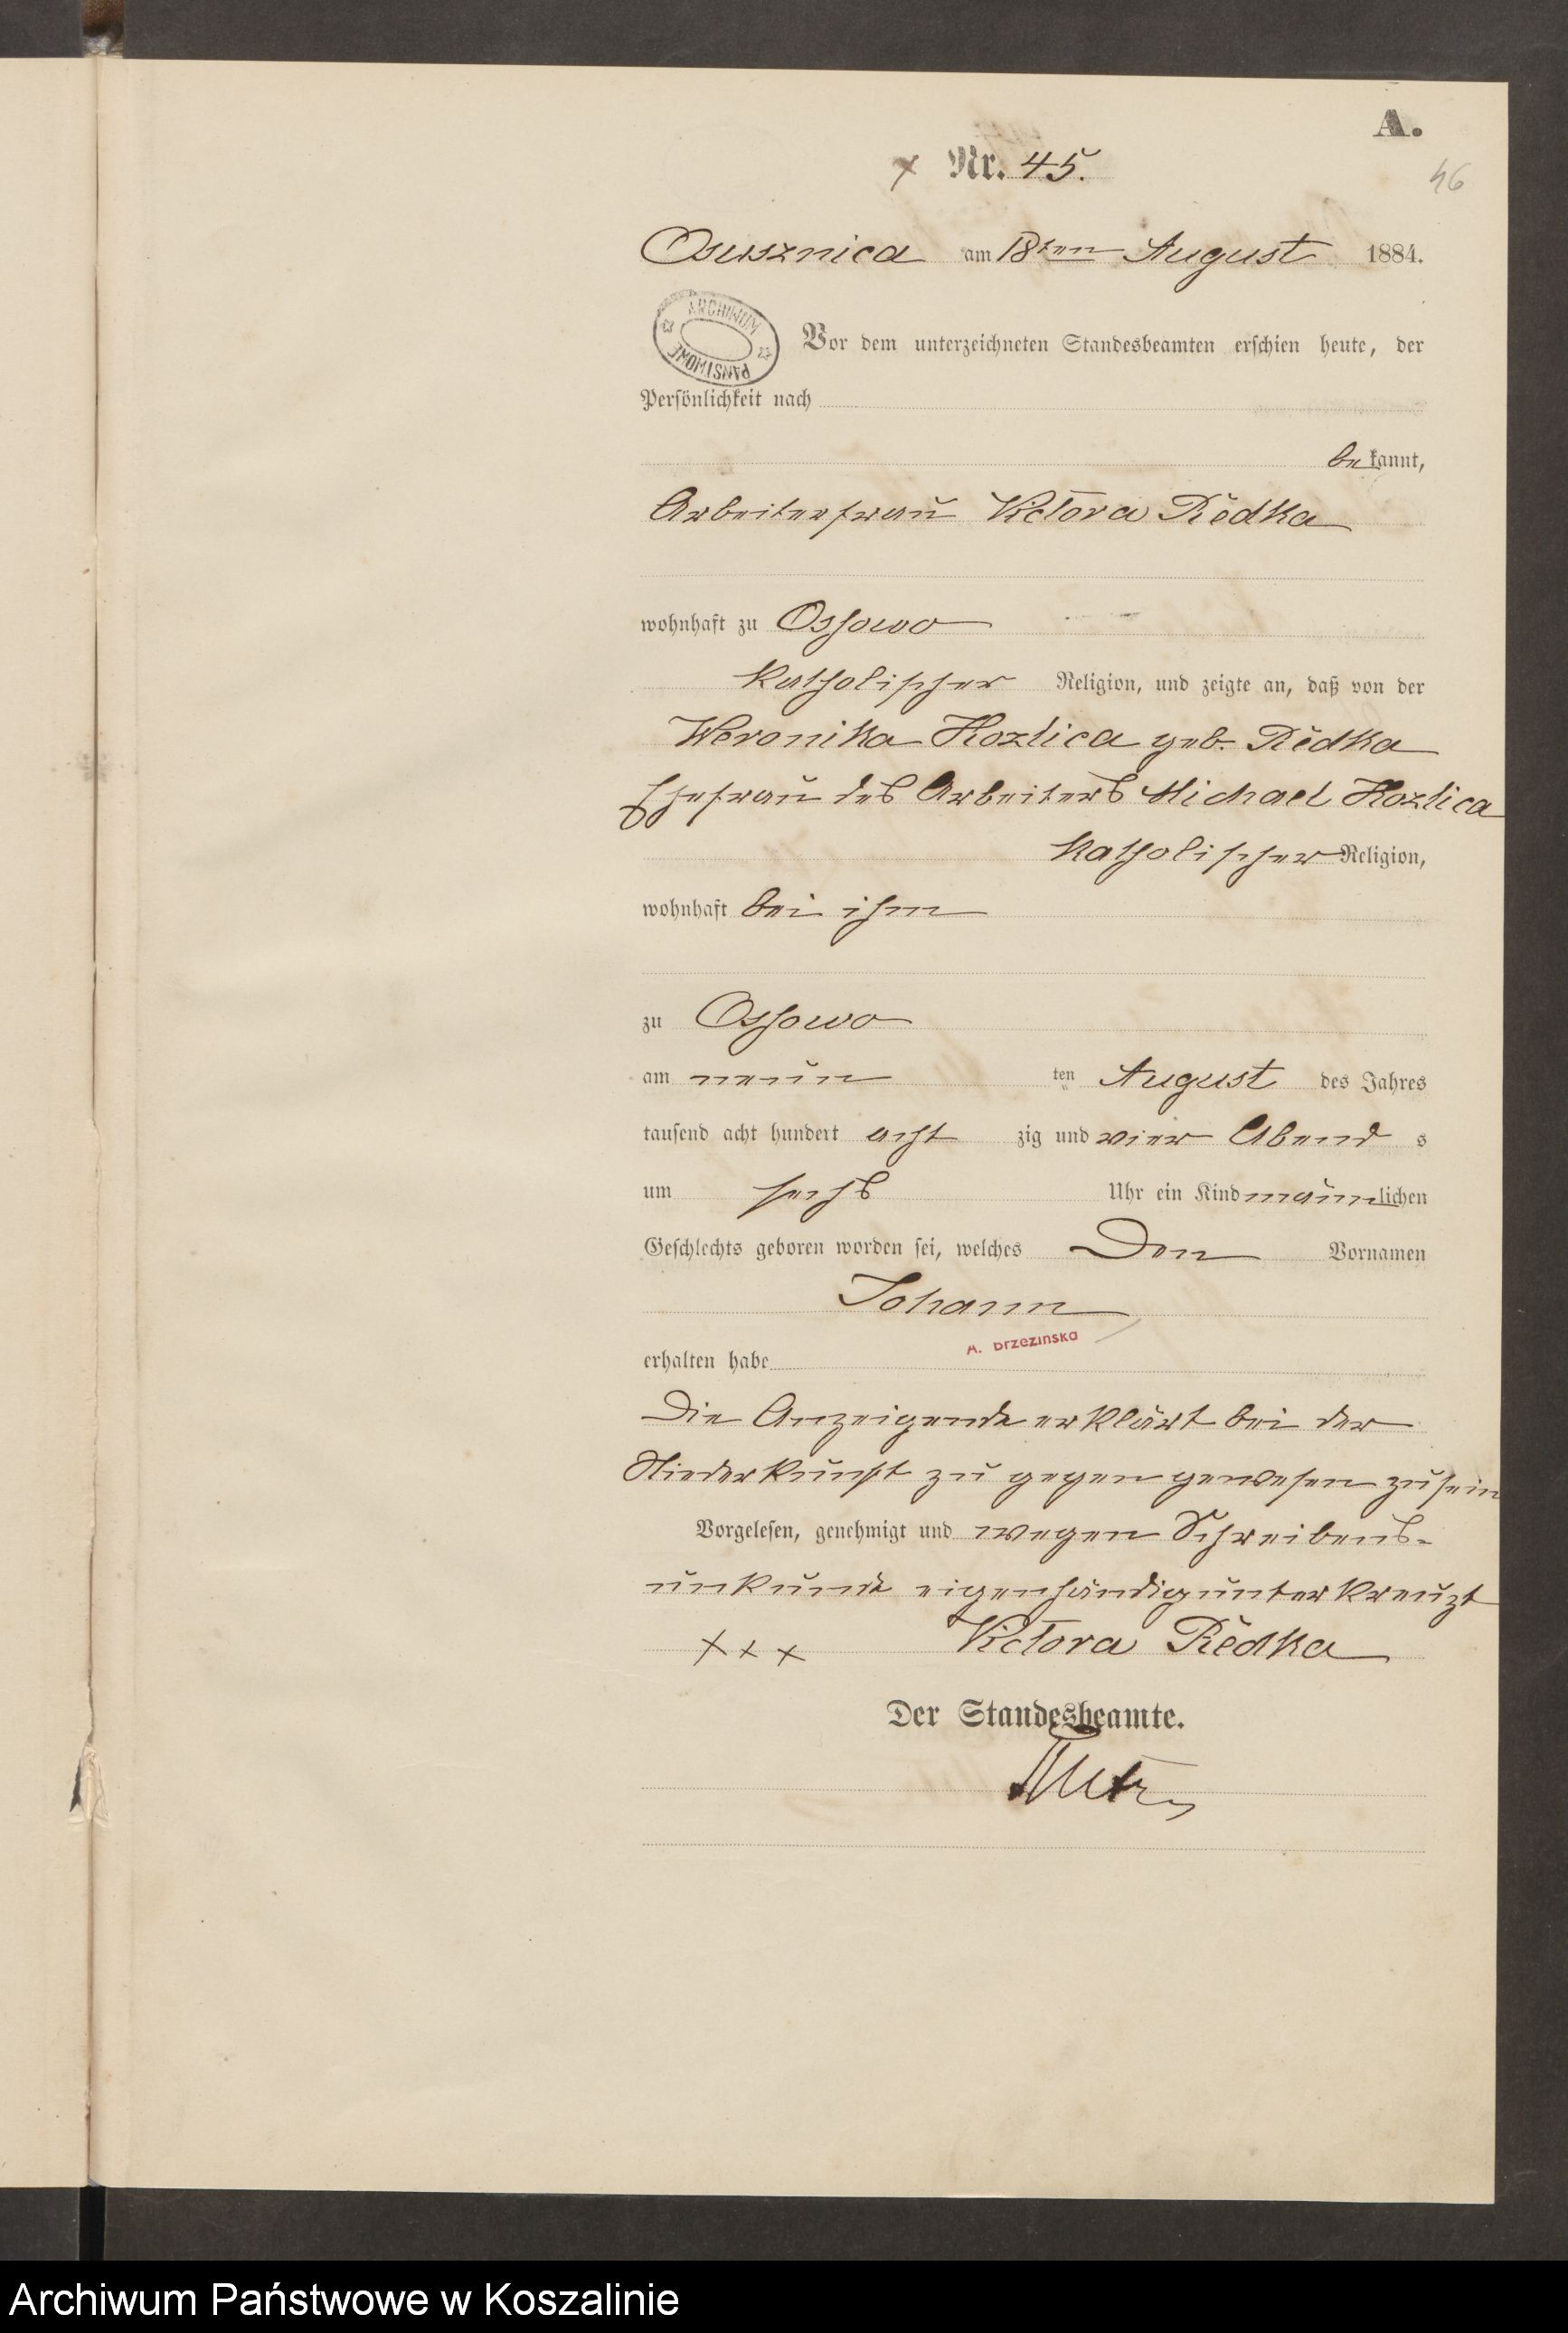 A.
Nr. 45.
46
Osusznica am 18ten August 1884.
ARCHIWUM
PAŃSTWOWE
Vor dem unterzeichneten Standesbeamten erschien heute, der
Persönlichkeit nach
bekannt,
Arbeiterfrau Victora Rědka
wohnhaft zu Ossowo
katholischer Religion, und zeigte an, daß von der
Weronika Kozlica geb. Rědka
Ehefrau des Arbeiters Michael Kozlica
katholischer Religion,
wohnhaft bei ihm
zu Ossowo
am neun ten August des Jahres
tausend acht hundert acht zig und vier Abend s
um sechs Uhr ein Kind männlichen
Geschlechts geboren worden sei, welches Den Vornamen
Johann
A. Brzezinska
erhalten habe
Die Anzeigende erklärt bei der
Niederkunft zu gegen gewesen zu sein
Vorgelesen, genehmigt und wegen Schreibens-
unkunde eigenhändig unterkreuzt
x x x Victora Rědka
Der Standesbeamte.
Archiwum Państwowe w Koszalinie